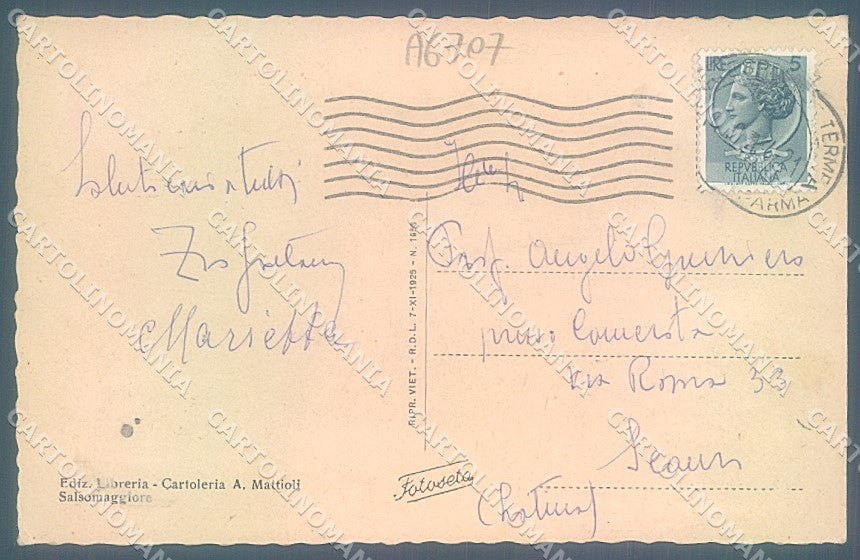 A6707
LIRE 5
REPVBBLICA
ITALIANA
TERME
PARMA
Saluti cari a tutti
Zio Gaetano
Marietta
Prof. Angelo
presso
via Roma 33
Scauri
(Latina)
RIPR. VIET. - R.D.L. 7-XI-1925 - N. 1950
Ediz. Libreria - Cartoleria A. Mattioli
Salsomaggiore
Fotoseta
CARTOLINOMANIA